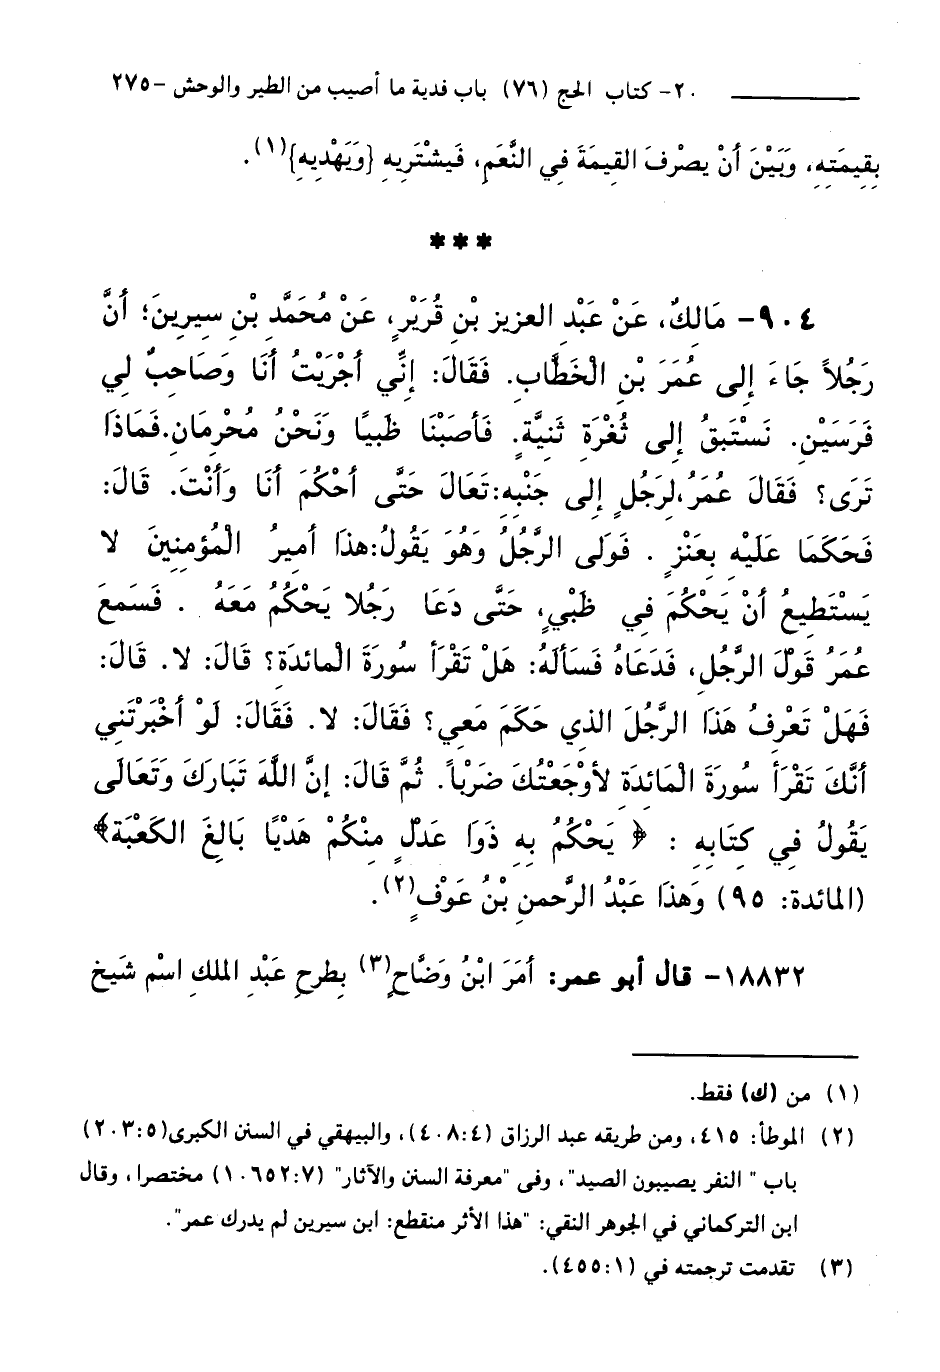 ٢٠- كتاب الحج (٧٦) باب فدية ما أصيب من الطير والوحش -٢٧٥
بِقِيمَتِهِ، وَبَيْنَ أَنْ يصْرْفَ القِيمَةَ فِي النَّعَمِ، فَيشْتَرِيهِ {وَيَهْدِيهِ}(١).
***
٩٠٤- مَالِكٌ، عَنْ عَبْدِ العزيز بْنِ قُرَيْرٍ، عَنْ مُحَمَّدِ بْنِ سيرينَ؛ أنَّ
رَجُلاً جَاءَ إلى عُمَرَ بْنِ الْخَطَّابِ. فَقَالَ: إنِّي أجْرَيْتُ أنَا وَصَاحِبٌ لِي
فَرَسَيْنِ. نَسْتَبِقُ إلى ثُغْرَةِ ثَنِيَّةٍ. فَأصَبْنَا ظَبيًا وَنَحْنُ مُحْرِمَانِ.فَمَاذَا
تَرَى؟ فَقَالَ عُمَرُ،لِرَجُلٍ إلى جَنْبِهِ:تَعَالَ حَتَّى أحْكُمَ أنَا وَأنْتَ. قَالَ:
فَحَكَمَا عَلَيْهِ بِعَنْزٍ . فَوَلى الرَّجُلُ وَهُوَ يَقُولُ:هذَا أمِيرُ الْمُؤمنِينَ لا
يَسْتَطِيعُ أنْ يَحْكُمَ فِي ظَبْيٍ، حَتَّى دَعَا رَجُلا يَحْكُمُ مَعَهُ . فَسَمِعَ
عُمَرُ قَوْلَ الرَّجُلِ، فَدَعَاهُ فَسَألَهُ: هَلْ تَقْرَأ سُورَةَ الْمائدَةِ؟ قَالَ: لا. قَالَ:
فَهَلْ تَعْرِفُ هَذَا الرَّجُلَ الذي حَكَمَ مَعِي؟ فَقَالَ: لا. فَقَالَ: لَوْ أخْبَرْتَنِي
أنَّكَ تَقْرَأ سُورَةَ الْمَائدَةِ لأوْجَعْتُكَ ضَرْباً. ثُمَّ قَالَ: إنَّ اللَّهَ تَبَارَكَ وَتَعَالَى
يَقُولُ فِي كتَابِهِ : ﴿ يَحْكُمُ بِهِ ذَوَا عَدْلٍ مِنْكُمْ هَدْيًا بَالِغَ الكَعْبَةِ﴾
(المائدة: ٩٥) وَهذَا عَبْدُ الرَّحمنِ بْنُ عَوْفٍ(٢).
١٨٨٣٢- قال أبو عمر: أمَرَ ابْنُ وَضَّاحٍ(٣) بِطرحِ عَبْدِ الملكِ اسْمِ شَيخِ
(١) من (ك) فقط.
(٢) الموطأ: ٤١٥، ومن طريقه عبد الرزاق (٤٠٨:٤)، والبيهقي في السنن الكبرى(٢٠٣:٥)
باب " النفر يصيبون الصيد"، وفى "معرفة السنن والآثار" (١٠٦٥٢:٧) مختصرا، وقال
ابن التركماني في الجوهر النقي: "هذا الأثر منقطع: ابن سيرين لم يدرك عمر".
(٣) تقدمت ترجمته في (٤٥٥:١).